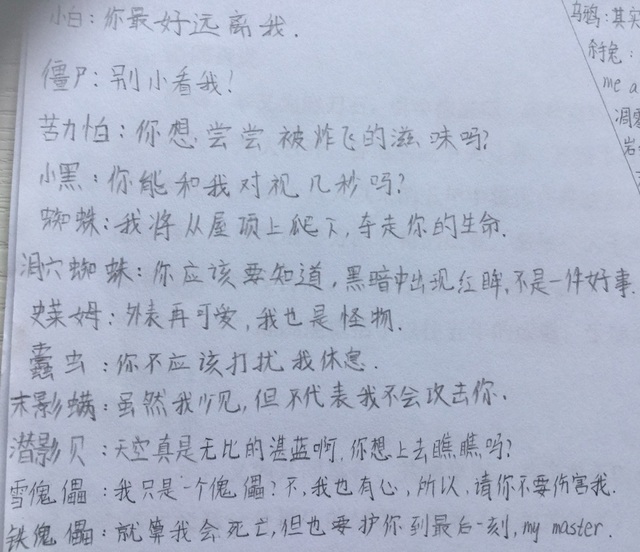 小白：你最好远离我.
僵尸：别小看我！
苦力怕：你想尝尝被炸飞的滋味吗？
小黑：你能和我对视几秒吗？
蜘蛛：我将从屋顶上爬下,夺走你的生命.
洞穴蜘蛛：你应该要知道,黑暗中出现红眸,不是一件好事.
史莱姆：外表再可爱,我也是怪物.
蠹虫：你不应该打扰我休息.
末影螨：虽然我少见,但不代表我不会攻击你.
潜影贝：天空真是无比的湛蓝啊,你想上去瞧瞧吗？
雪傀儡：我只是一个傀儡？不,我也有心,所以,请你不要伤害我.
铁傀儡：就算我会死亡,但也要护你到最后一刻,my master.
乌鸦：其实
杀兔：
me a
凋零
岩